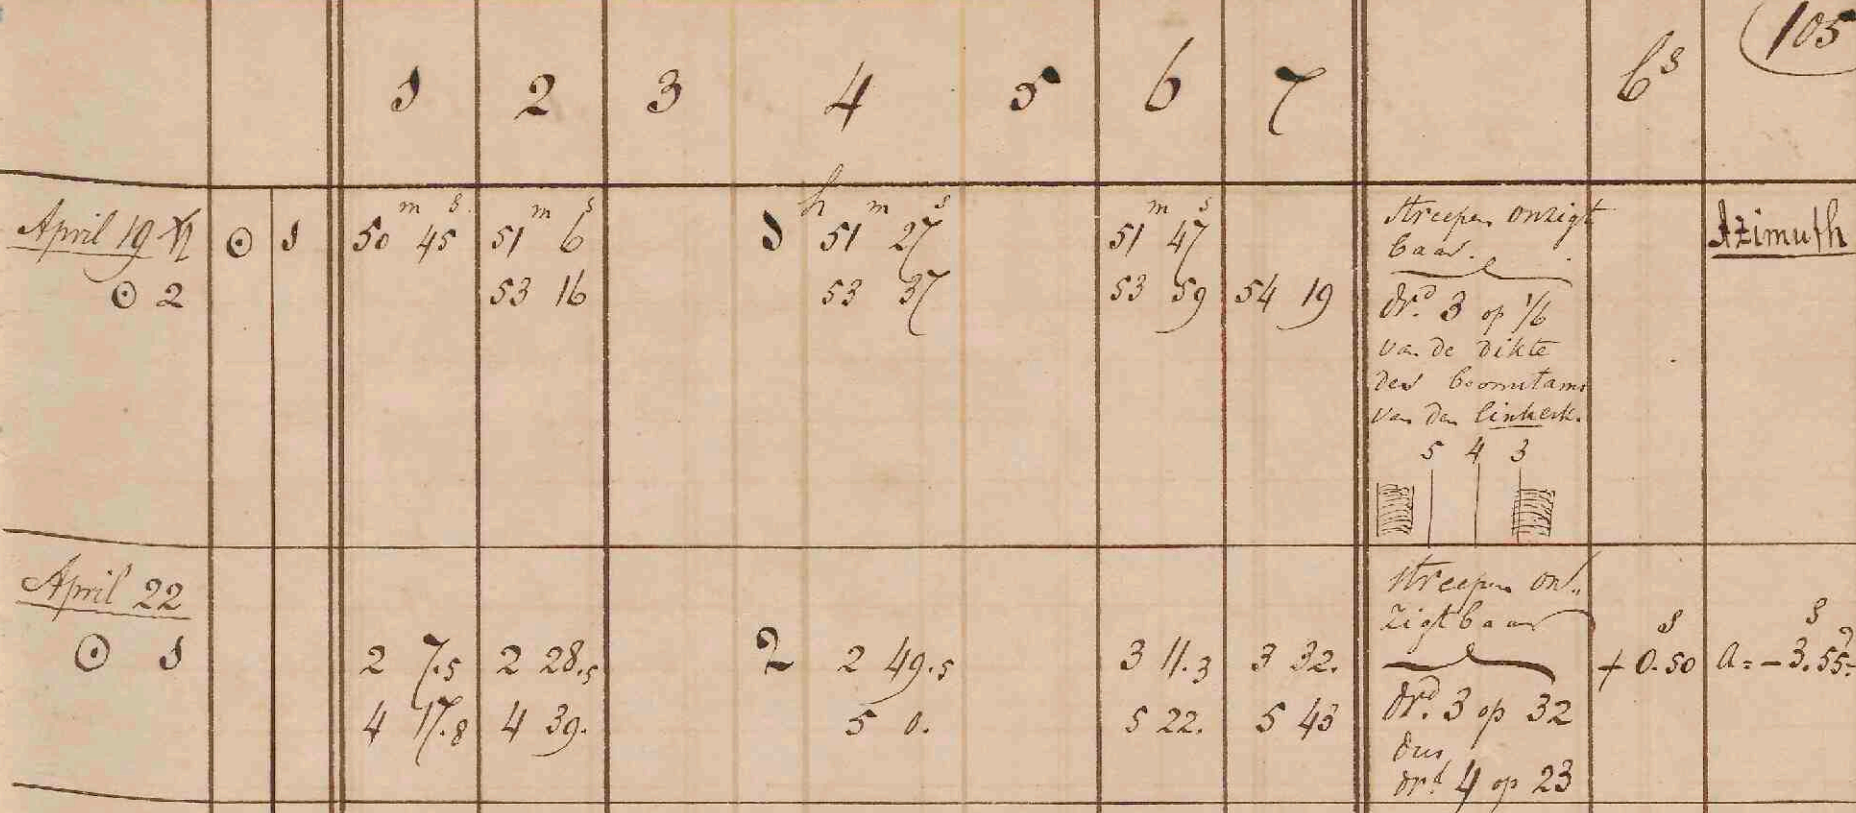 1 2 3 4 5 6 7 6s 105
April 19 ♄ ☉ 1 50m 45s 51m 6s 1h 51m 27s 51m 47s Streepen onzigt Azimuth
baar.
☉ 2 53 16 53 37 53 59 54 19 drd. 3 op 1/6
van de dikte
der boomstam
van den linkerk.
5 4 3
April 22 Streepen on„
zigtbaar
☉ 1 2 7.5 2 28.5 2 2 49.5 3 11.3 3 32. + 0s.50 a = - 3s.55
4 17.8 4 39. 5 0. 5 22. 5 43 drd. 3 op 32
dus
drd 4 op 23